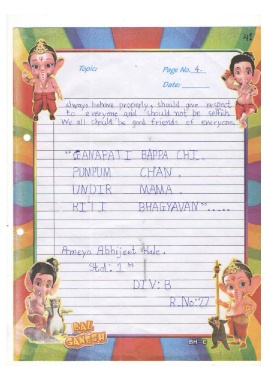 41
Topic: Page No. 4.
Date:
always behave properly, should give respect
to everyone and should not be selfish.
We all should be good friends of everyone.
"GANAPATI BAPPA CHI.
PUMPUM CHAN.
UNDIR MAMA
KITI BHAGYAVAN".....
Ameya Abhijeet
Std: 2
DIV: B
R.No: 27
BAL
GANESH